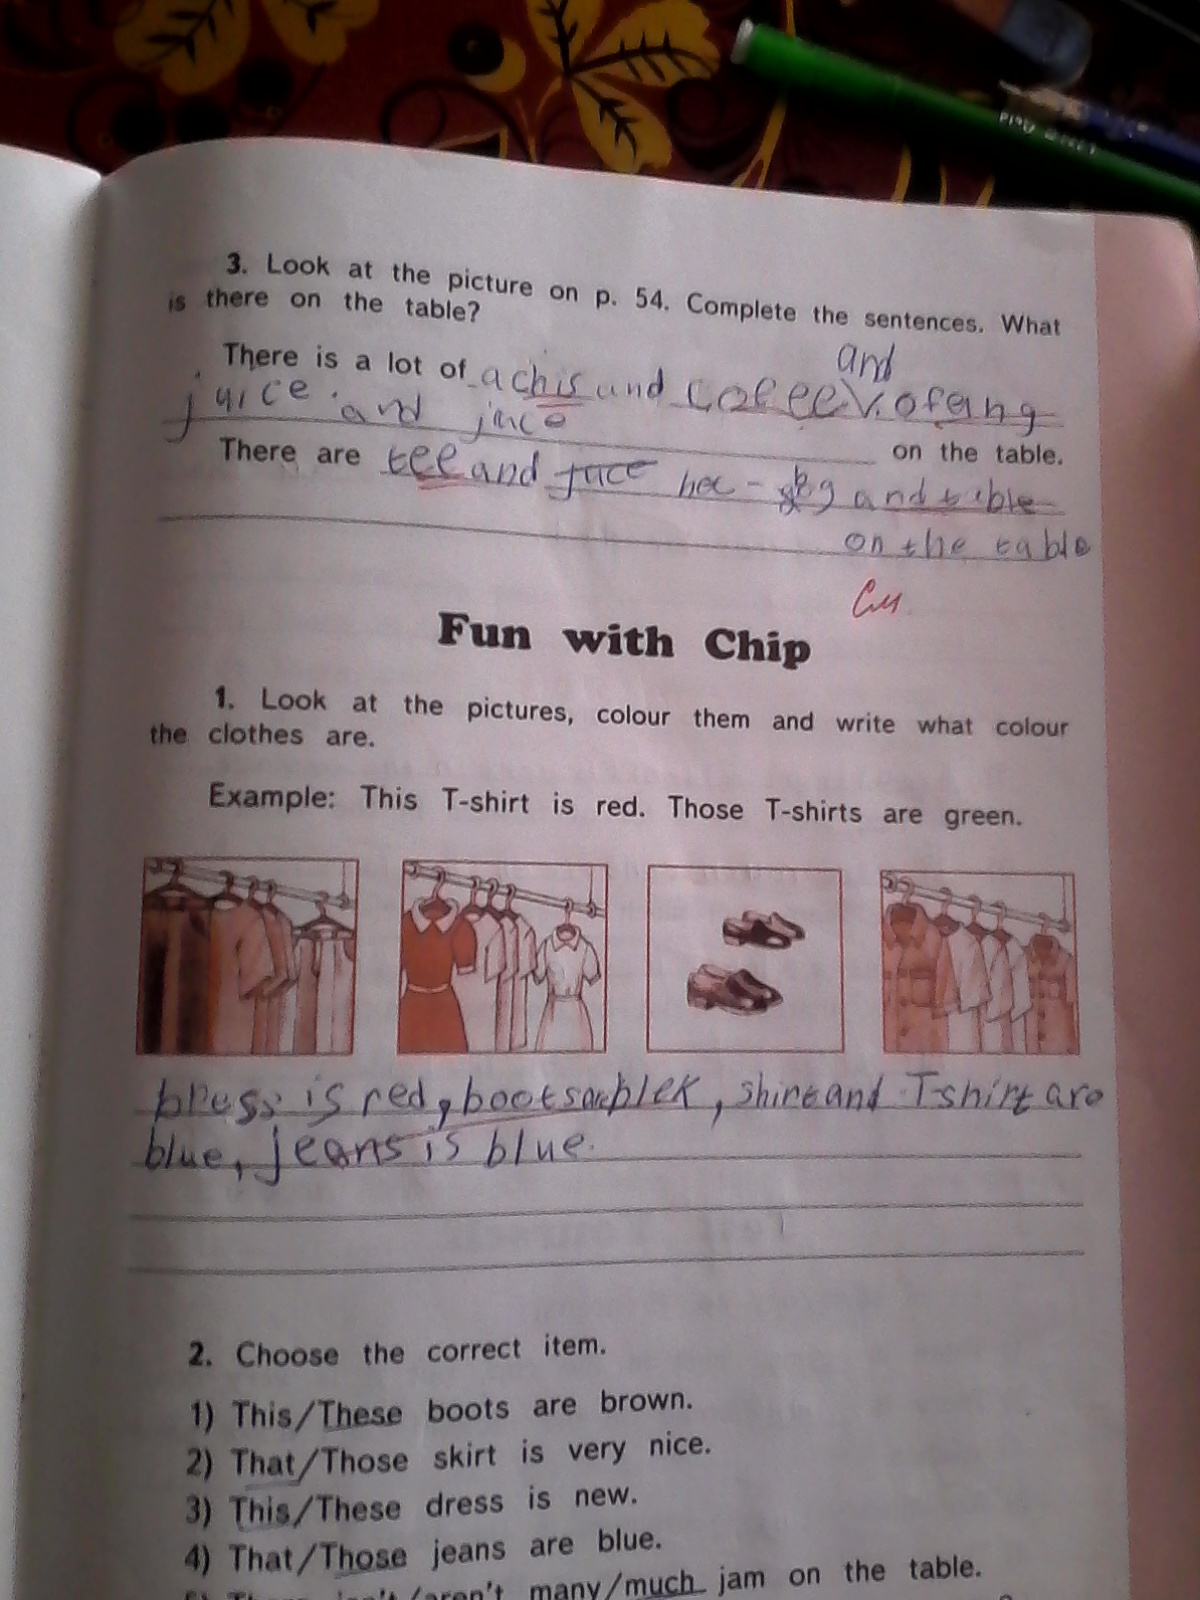 3. Look at the picture on p. 54. Complete the sentences. What
is there on the table?
and
There is a lot of achis and cofee V. ofang
juice. and juce
on the table.
There are tee and juce hot-dog and table
on the table
См
Fun with Chip
1. Look at the pictures, colour them and write what colour
the clothes are.
Example: This T-shirt is red. Those T-shirts are green.
bress is red, boots are blek, shirt and T-shirt are
blue, jeans is blue.
2. Choose the correct item.
1) This/These boots are brown.
2) That/Those skirt is very nice.
3) This/These dress is new.
4) That/Those jeans are blue.
isn't/aren't many/much jam on the table.